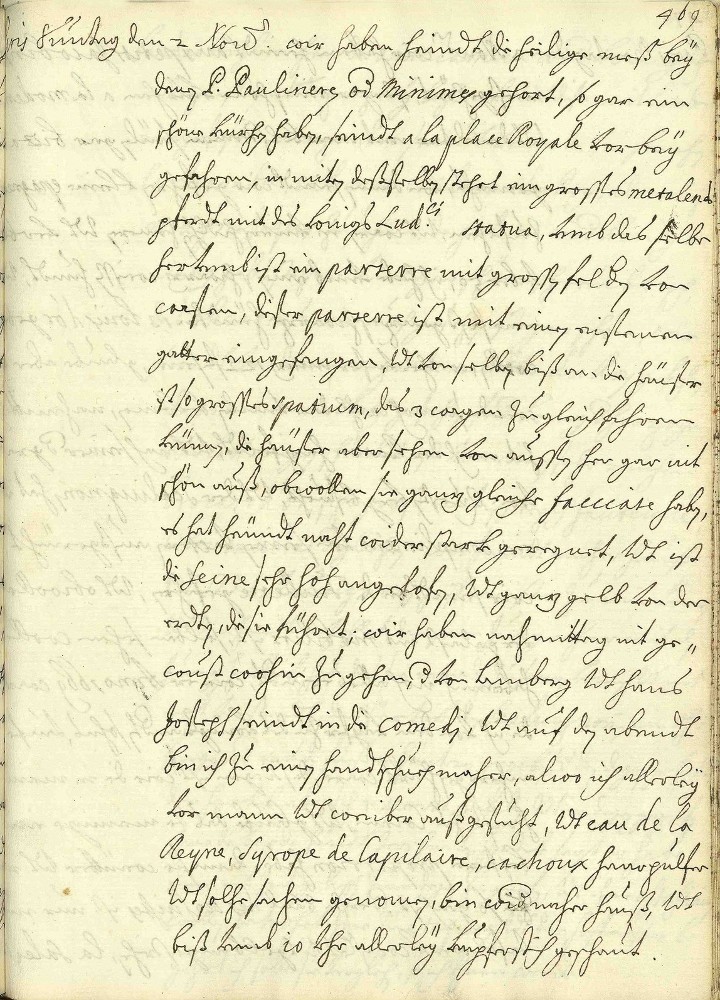 469
Suntag den 2 Nov: wir haben heindt die heilige meß beÿ
denen P. Paulinern od Minimes gehort, so gar ein
schöne kürchen haben, seindt a la place Royale vorbeÿ
gefahren, in miten deßselben stehet ein grosses metalens
pferdt mit des königs Lud: statua, umb das selbe
herumb ist ein parterre mit grossen feldern von
wasen, diser parterre ist mit einem eisernen
gatter eingefangen, Vdt von selben biß an die häuser
ist so grosses spatium, das 3 wagen zugleich fahren
künen, die häuser aber sehen von aussen her gar nit
schön auß, obwollen sie ganz gleiche facciate haben,
es hat heündt naht wider stark geregnet, Vdt ist
die Seine sehr hoh angelofen, Vdt ganz gelb von der
erdten, die sie führet; wir haben nahmittag nit ge-
wust wohin zugehen, d von Lamberg Vdt hans
Joseph seindt in die comedi, Vdt auf den abendt
bin ich zu einem handtschuechmaher, alwo ich allerleÿ
vor mann Vdt weiber außgesuht, Vdt eau de la
Reyne, Syrope de Capilaire, cachoux haarpulfer
Vdt solhe sachen genomen, bin wider naher hauß, Vdt
biß umb 10 Uhr allerleÿ kupferstich geschaut.